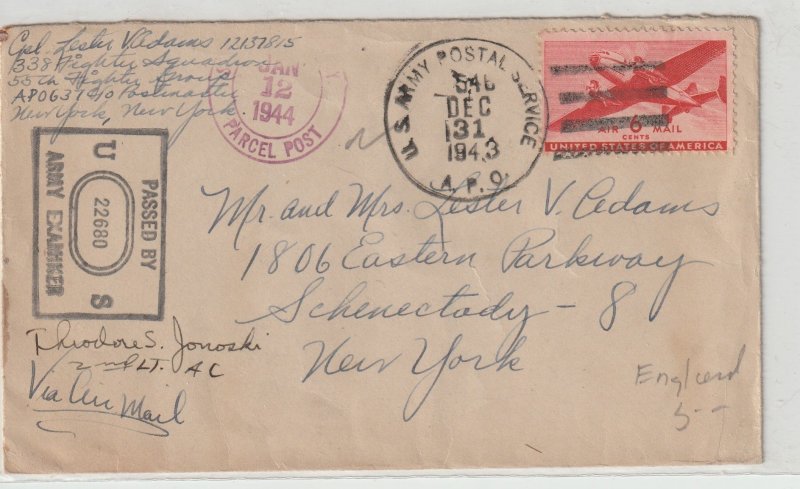 Cpl. Lester V. Adams 12137815
338 Fighter Squadron
55th Fighter Group
APO 637 c/o Postmaster
New York, New York
JAN
12
1944
PARCEL POST
U.S. ARMY POSTAL SERVICE
546
DEC
31
1943
A.P.O.
AIR 6 MAIL
CENTS
UNITED STATES OF AMERICA
PASSED BY
U 22680 S
ARMY EXAMINER
Mr. and Mrs. Lester V. Adams
1806 Eastern Parkway
Schenectady - 8
New York
Theodore S. Jonoski
2nd LT. AC
Via Air Mail
England
5--